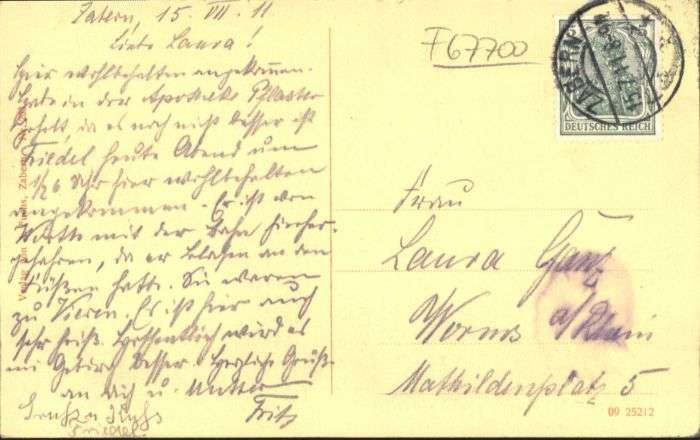 Zabern, 15. VII. 11
Liebe Laura!
Hier wohlbehalten angekommen.
Habe in der Apotheke Pflaster
geholt, da es noch nicht besser ist
Friedel heute Abend um
1/26 Uhr hier wohlbehalten
angekommen. Er ist von
mit der Bahn hierher-
gefahren, da er Blasen an den
Füßen hatte. Sie waren
zu Vieren. Es ist hier auch
sehr heiß. Hoffentlich wird es
im Gebirge besser. Herzliche Grüße
an Dich u. Mutter
Fritz
Friedel
F67700
ZABERN
DEUTSCHES REICH
Frau
Laura
Worms
a/Rhein
Mathildenplatz 5
09 25212